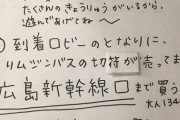 たくさんのきょうりゅうがいるから、
遊んであげてね〜
到着ロビーのとなりに、
リムジンバスの切符が売ってま
広島新幹線口まで買う
大人134